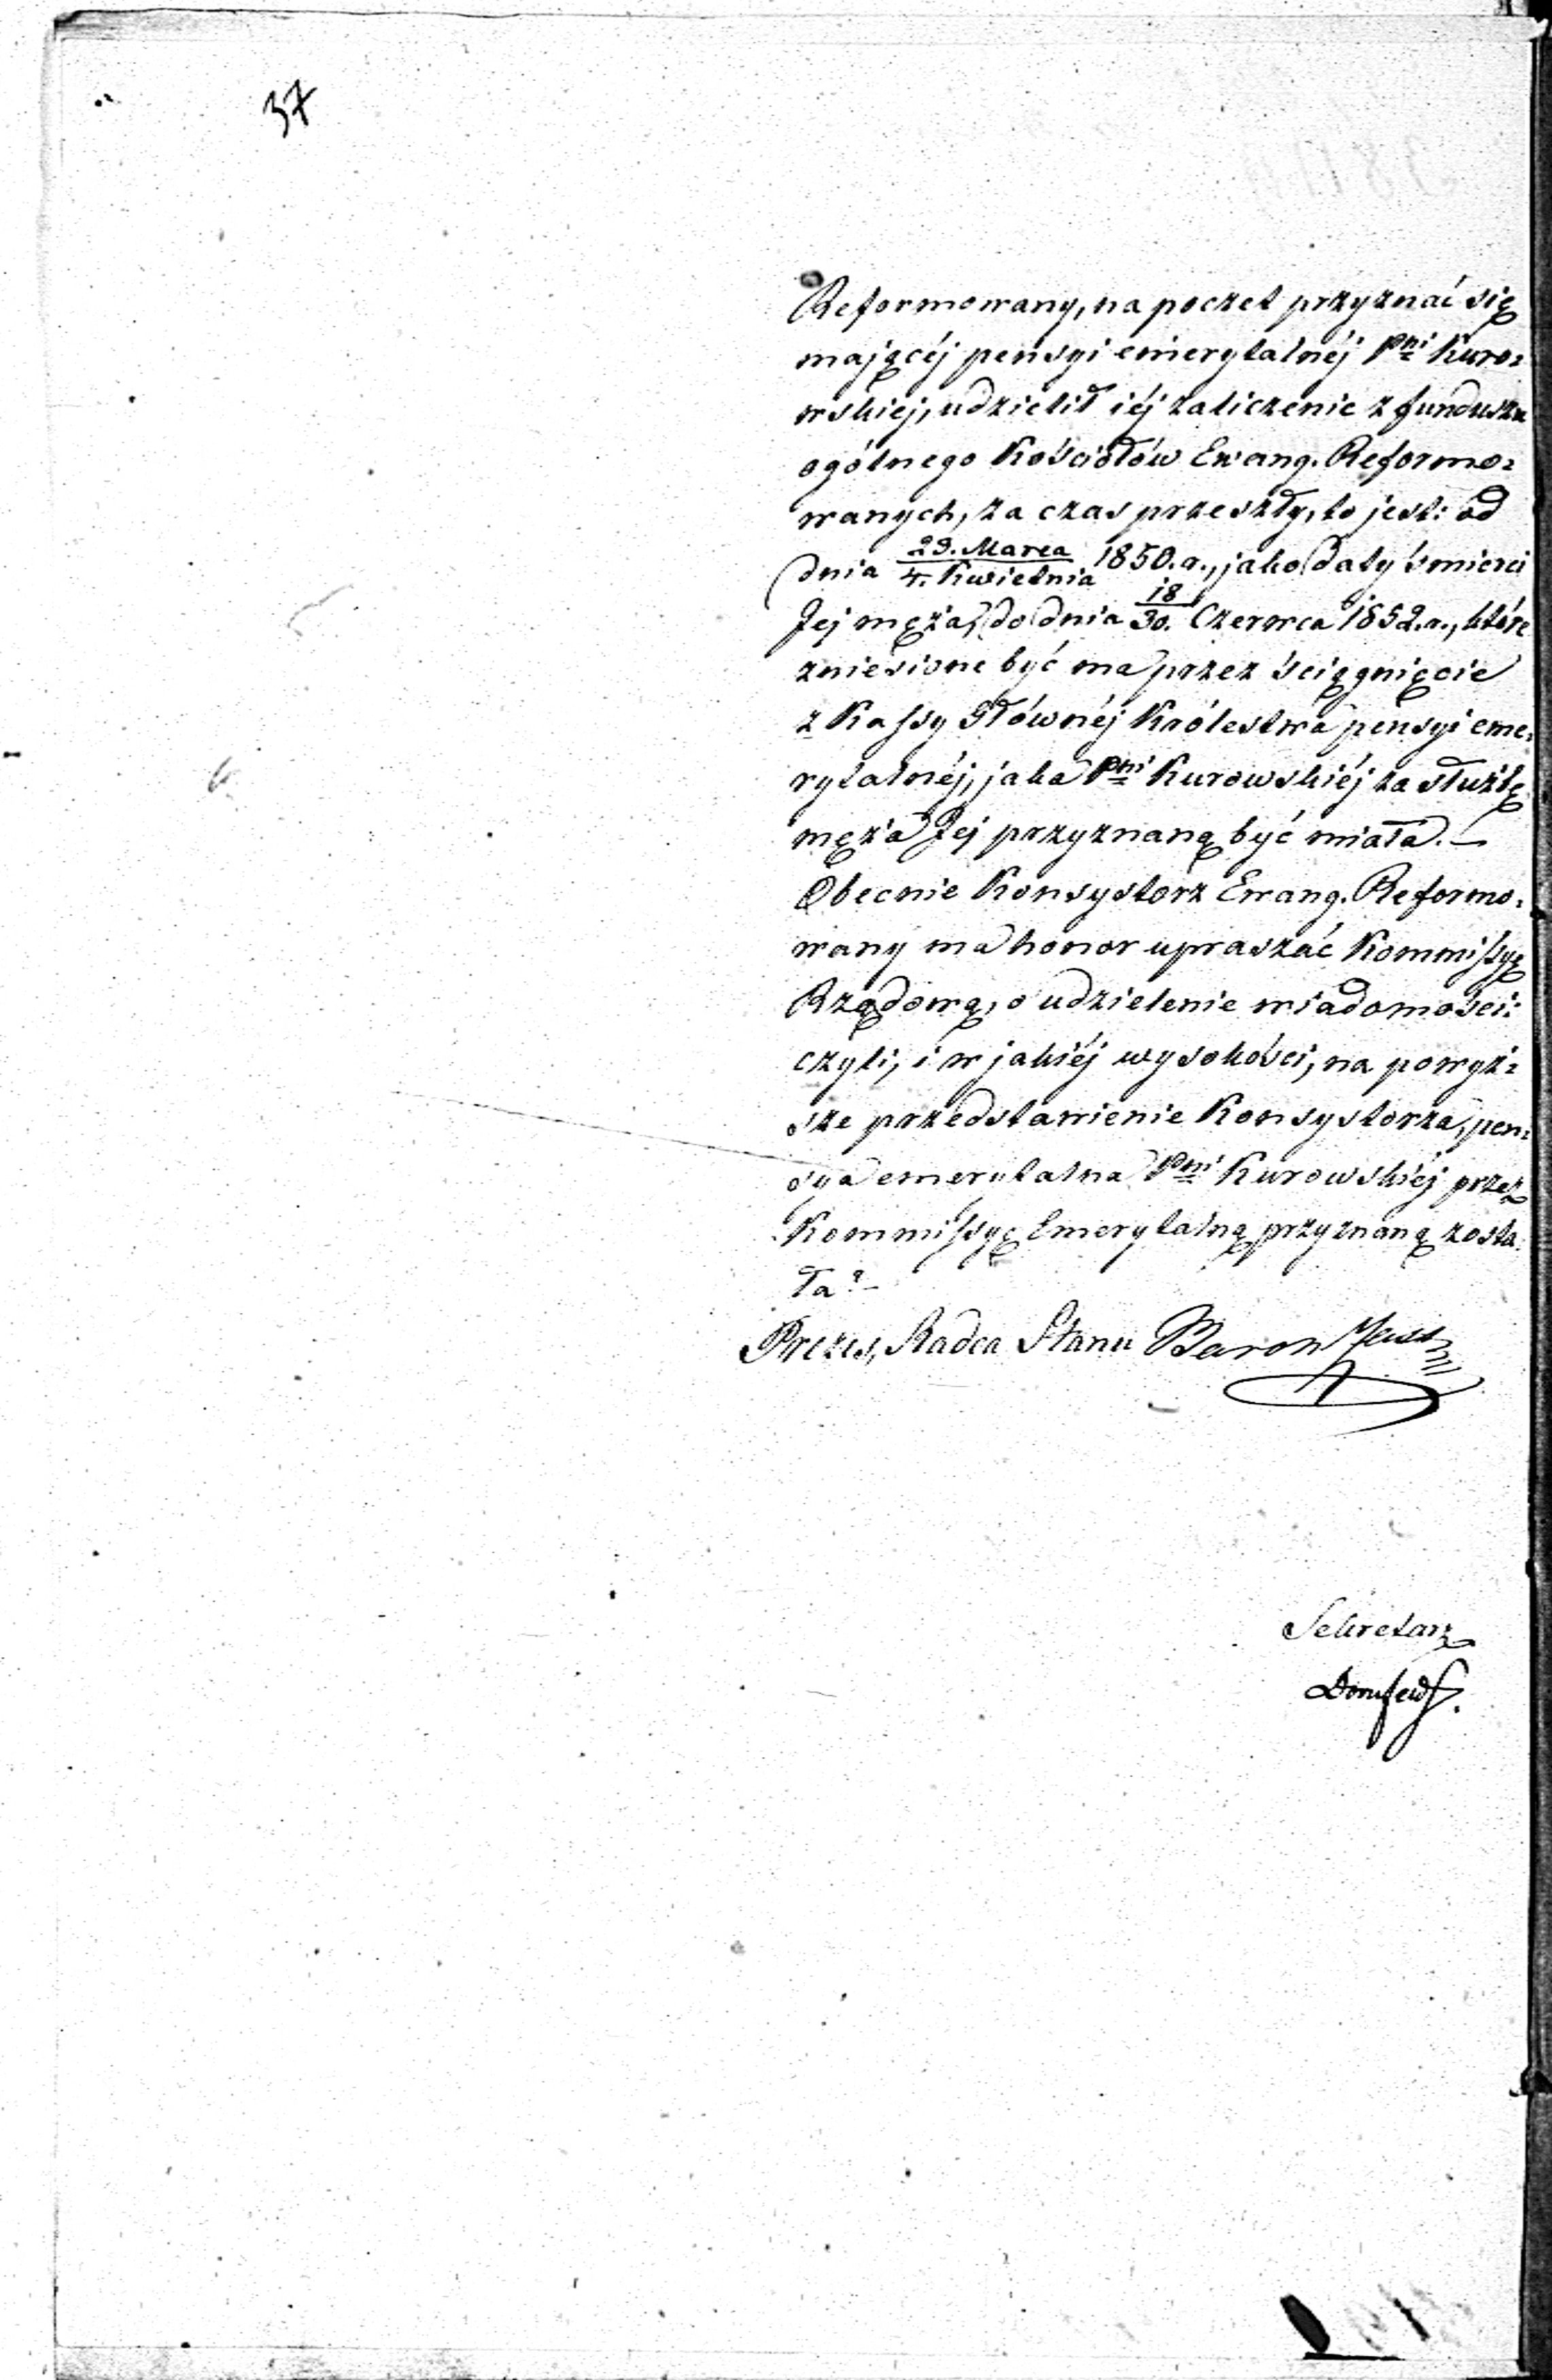 37
Reformowany, na poczet przyznać się
mającéj pensyi emerytalnéj Pni Kuro=
wskiej, udzielił iéj zaliczenie z funduszu
ogólnego Kościołów Ewang. Reformo=
wanych, za czas przeszły, to jest: od
dnia 23. Marca / 4. Kwietnia 1850. r., jako daty śmierci
Jej męża, do dnia 18/30. Czerwca 1852. r., które
zniesione być ma przez ściągnięcie
z Kassy Głównéj Królestwa pensyi eme=
rytalnéj, jaka Pni Kurowskiéj za służbę
męża Jej przyznaną być miała. —
Obecnie Konsystorz Ewang. Reformo=
wany ma honor upraszać Kommissyę
Rządową, o udzielenie wiadomości:
czyli, i w jakiéj wysokości, na powyż=
sze przedstawienie Konsystorza, pen=
sya emerytalna Pni Kurowskiéj przez
Kommissyę Emerytalną przyznaną zosta=
ła? —
Prezes, Radca Stanu Baron
Sekretarz